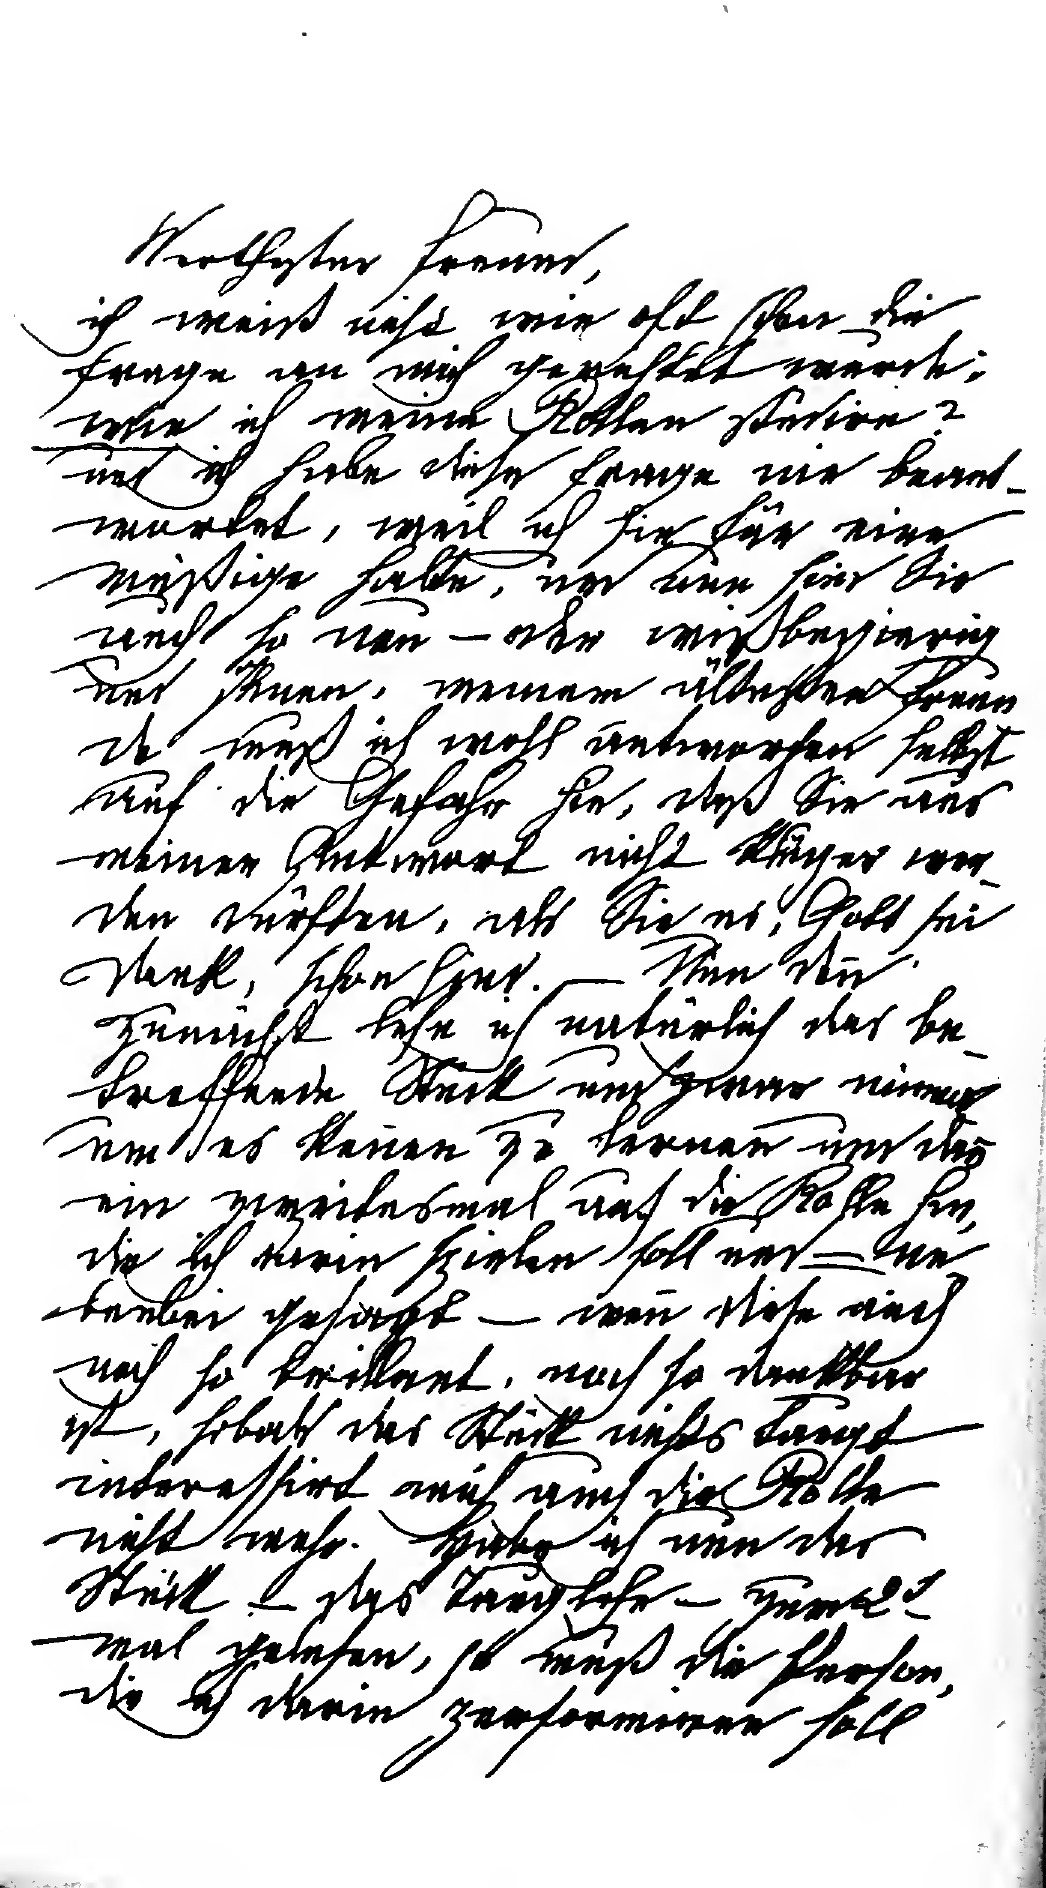 Werthester Freund,
ich weiß nicht wie oft schon die
Frage an mich gerichtet wurde:
wie ich meine Rollen studire?
und ich habe diese Frage nie beant-
wortet, weil ich sie für eine
müßige halte, und nun sind Sie
auch so neu – oder wißbegierig
und Ihnen, meinem ältesten Freun
de muß ich wohl antworten selbst
auf die Gefahr hin, daß Sie aus
meiner Antwort nicht klüger wer-
den dürften, als Sie es, Gott sei
Dank, schon sind. — Nun denn
Zunächst lese ich natürlich das be-
treffende Stück und zwar einmal
um es kennen zu lernen und dann
ein zweitesmal auf die Rolle hin,
die ich darin spielen soll und — ne
benbei gesagt — wenn diese auch
noch so brillant, noch so dankbar
ist, sobald das Stück nichts taugt
interessirt mich auch die Rolle
nicht mehr. Habe ich nun das
Stück — das taugliche — zum 2t-
mal gelesen, so muß die Person,
die ich darin performiren soll